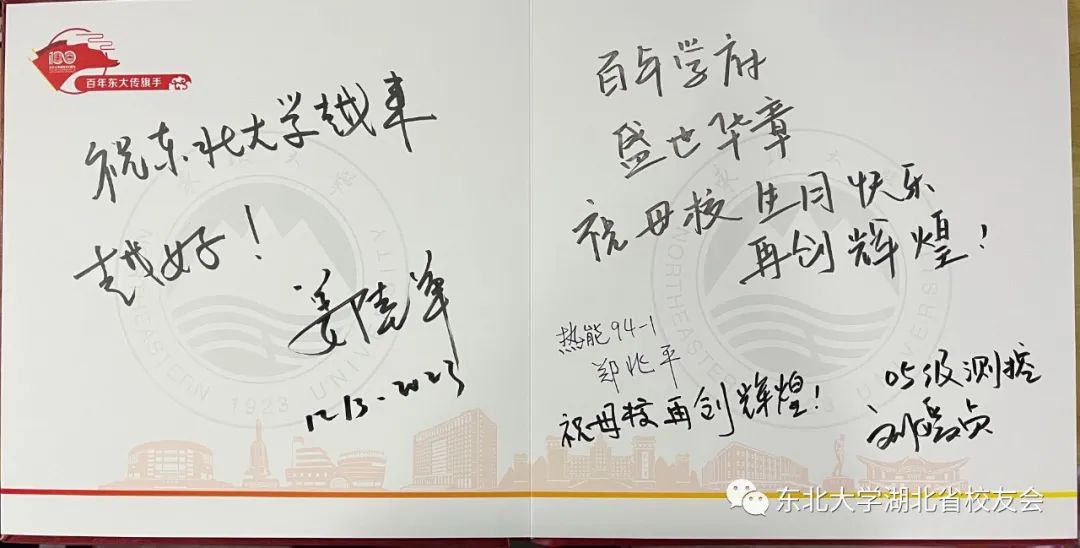 100
百年东大传旗手
祝东北大学越来
越好！
12/3-2023
NORTHEASTERN UNIVERSITY
1923
百年学府
盛世华章
祝母校生日快乐
再创辉煌！
热能94-1
郑兆平
祝母校再创辉煌！
05级测控
NORTHEASTERN UNIVERSITY
东北大学湖北省校友会